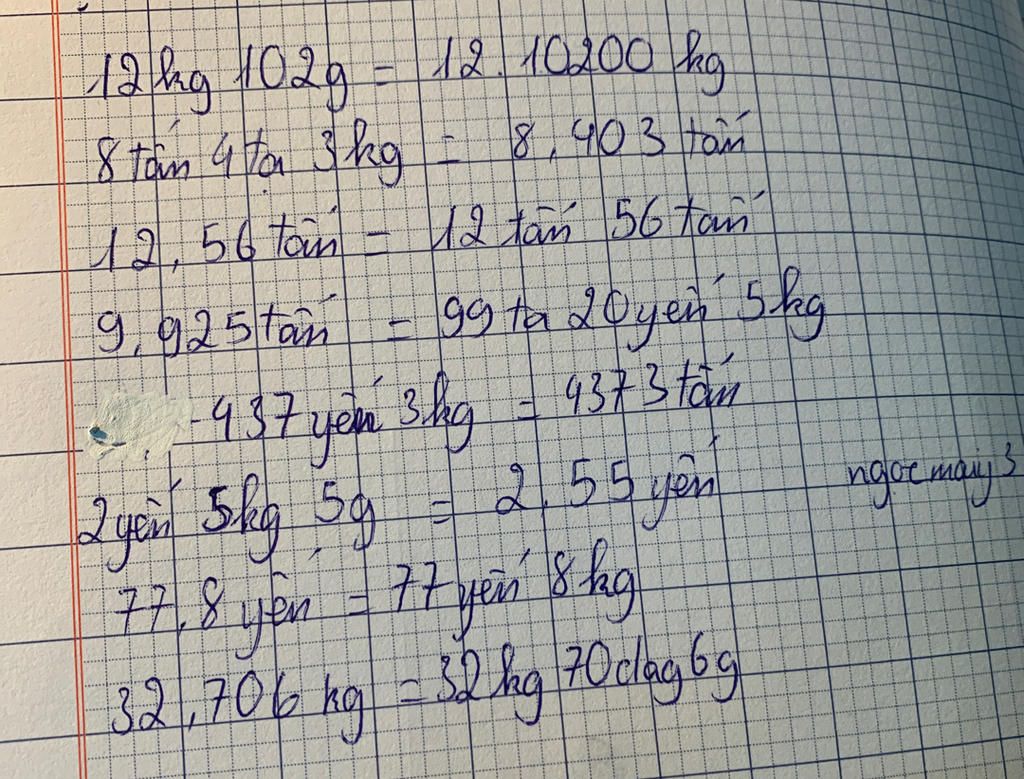 12kg 102g = 12.10200 kg
8 tấn 4 tạ 3kg = 8,403 tấn
12,56 tấn = 12 tấn 56 tấn
9,925 tấn = 99 tạ 20 yến 5kg
437 yến 3kg = 4373 tấn
2 yến 5kg 5g = 2,55 yến
ngocmaiy3
77,8 yến = 77 yến 8kg
32,706 kg = 32kg 70dag 6g